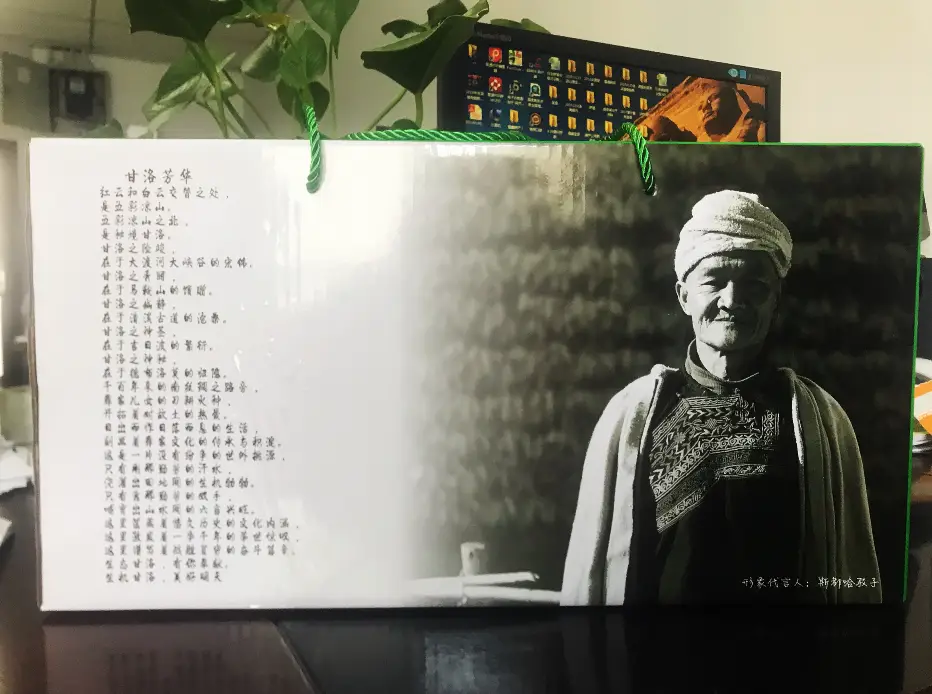 甘洛芳华
红云和白云交替之处，
是五彩凉山。
五彩凉山之北，
是秘境甘洛。
甘洛之险峻，
在于大渡河大峡谷的宏伟。
甘洛之美丽，
在于马鞍山的惜蹭。
甘洛之幽静，
在于清溪古道的沧桑。
甘洛之神圣，
在于吉日波的繁衍。
甘洛之神秘，
在于德布洛莫的归隐。
千百年来的南丝绸之路旁，
彝家儿女的刀耕火种，
开拓着对故土的热爱。
日出而作日落而息的生活，
刻画着彝家文化的传承与积淀。
这是一片没有纷争的世外桃源，
只有南那勤劳的汗水，
浇灌出田地间的生机勃勃。
只有靠那勤劳的双手，
哺育出山水间的六畜兴旺。
这里蕴藏着悠久历史的文化内涵，
这里散发着一步千年的举世惊叹，
这里谱写着战胜贫穷的奋斗篇章。
生态甘洛，有你奉献，
生机甘洛，美好明天
形象代言人：斯都哈教子